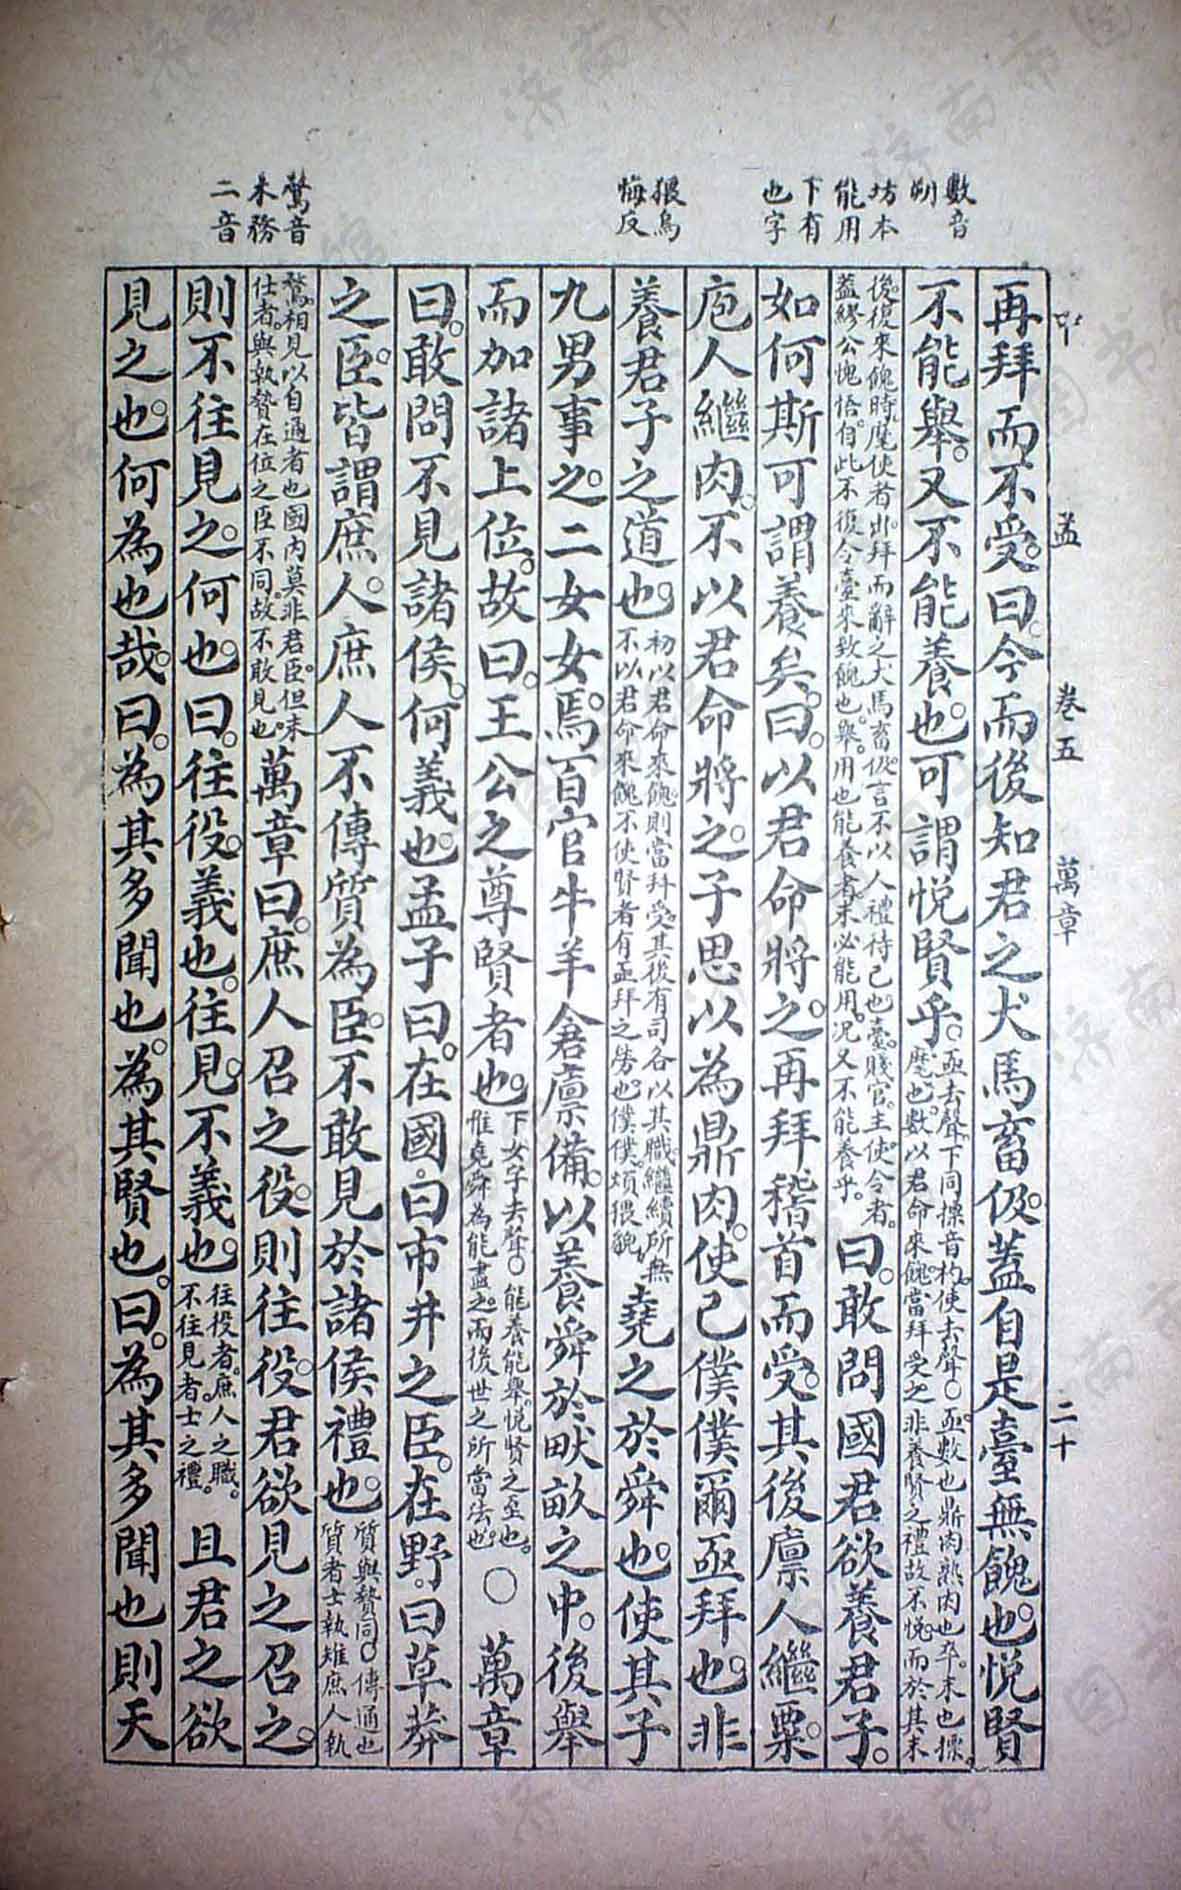 數音
朔
坊本
能用
下有
也字
猥烏
悔反
鶩音
木務
二音
中 孟 卷五 萬章 二十
再拜而不受。曰。今而後知君之犬馬畜伋。蓋自是臺無餽也。悅賢
不能舉。又不能養也。可謂悅賢乎。○亟去聲。下同摽音杓。使去聲○亟。數也鼎肉熟肉也卒。末也摽。
麾也。數以君命來餽。當拜受之非養賢之禮故不悅。而於其末
後。復來餽時。麾使者出。拜而辭之犬馬畜伋。言不以人禮待己也臺。賤官。主使令者。
蓋繆公愧恰自。此不復令臺來致餽也。舉。用也能養者。未必能用。况又不能養乎。
曰。敢問國君欲養君子。
如何斯可謂養矣。曰。以君命將之。再拜稽首而受。其後廩人繼粟。
庖人繼肉。不以君命將之。子思以為鼎肉。使己僕僕爾亟拜也。非
養君子之道也。初以君命來餽。則當拜受。其後有司各以其職繼續所無
不以君命來餽不使賢者有亟拜之勞也。僕僕。煩猥貌
堯之於舜也。使其子
九男事之。二女女焉。百官牛羊倉廩備。以養舜於畎畝之中。後舉
而加諸上位。故曰。王公之尊賢者也。下女字去聲○能養能舉。悅賢之至也。
惟堯舜為能盡之。而後世之所當法也。
○ 萬章
曰。敢問不見諸侯。何義也。孟子曰。在國。曰市井之臣。在野。曰草莽
之臣。皆謂庶人。庶人不傳質為臣。不敢見於諸侯禮也。質與贄同○傳通也
質者士執雉庶人執
鶩。相見以自通者也國內莫非君臣。但未
仕者。與執贄在位之臣不同。故不敢見也。
萬章曰。庶人召之役。則往役。君欲見之召之。
則不往見之。何也。曰。往役。義也。往見。不義也。往役者。庶人之職。
不往見者。士之禮。
且君之欲
見之也。何為也哉。曰。為其多聞也。為其賢也。曰。為其多聞也則天